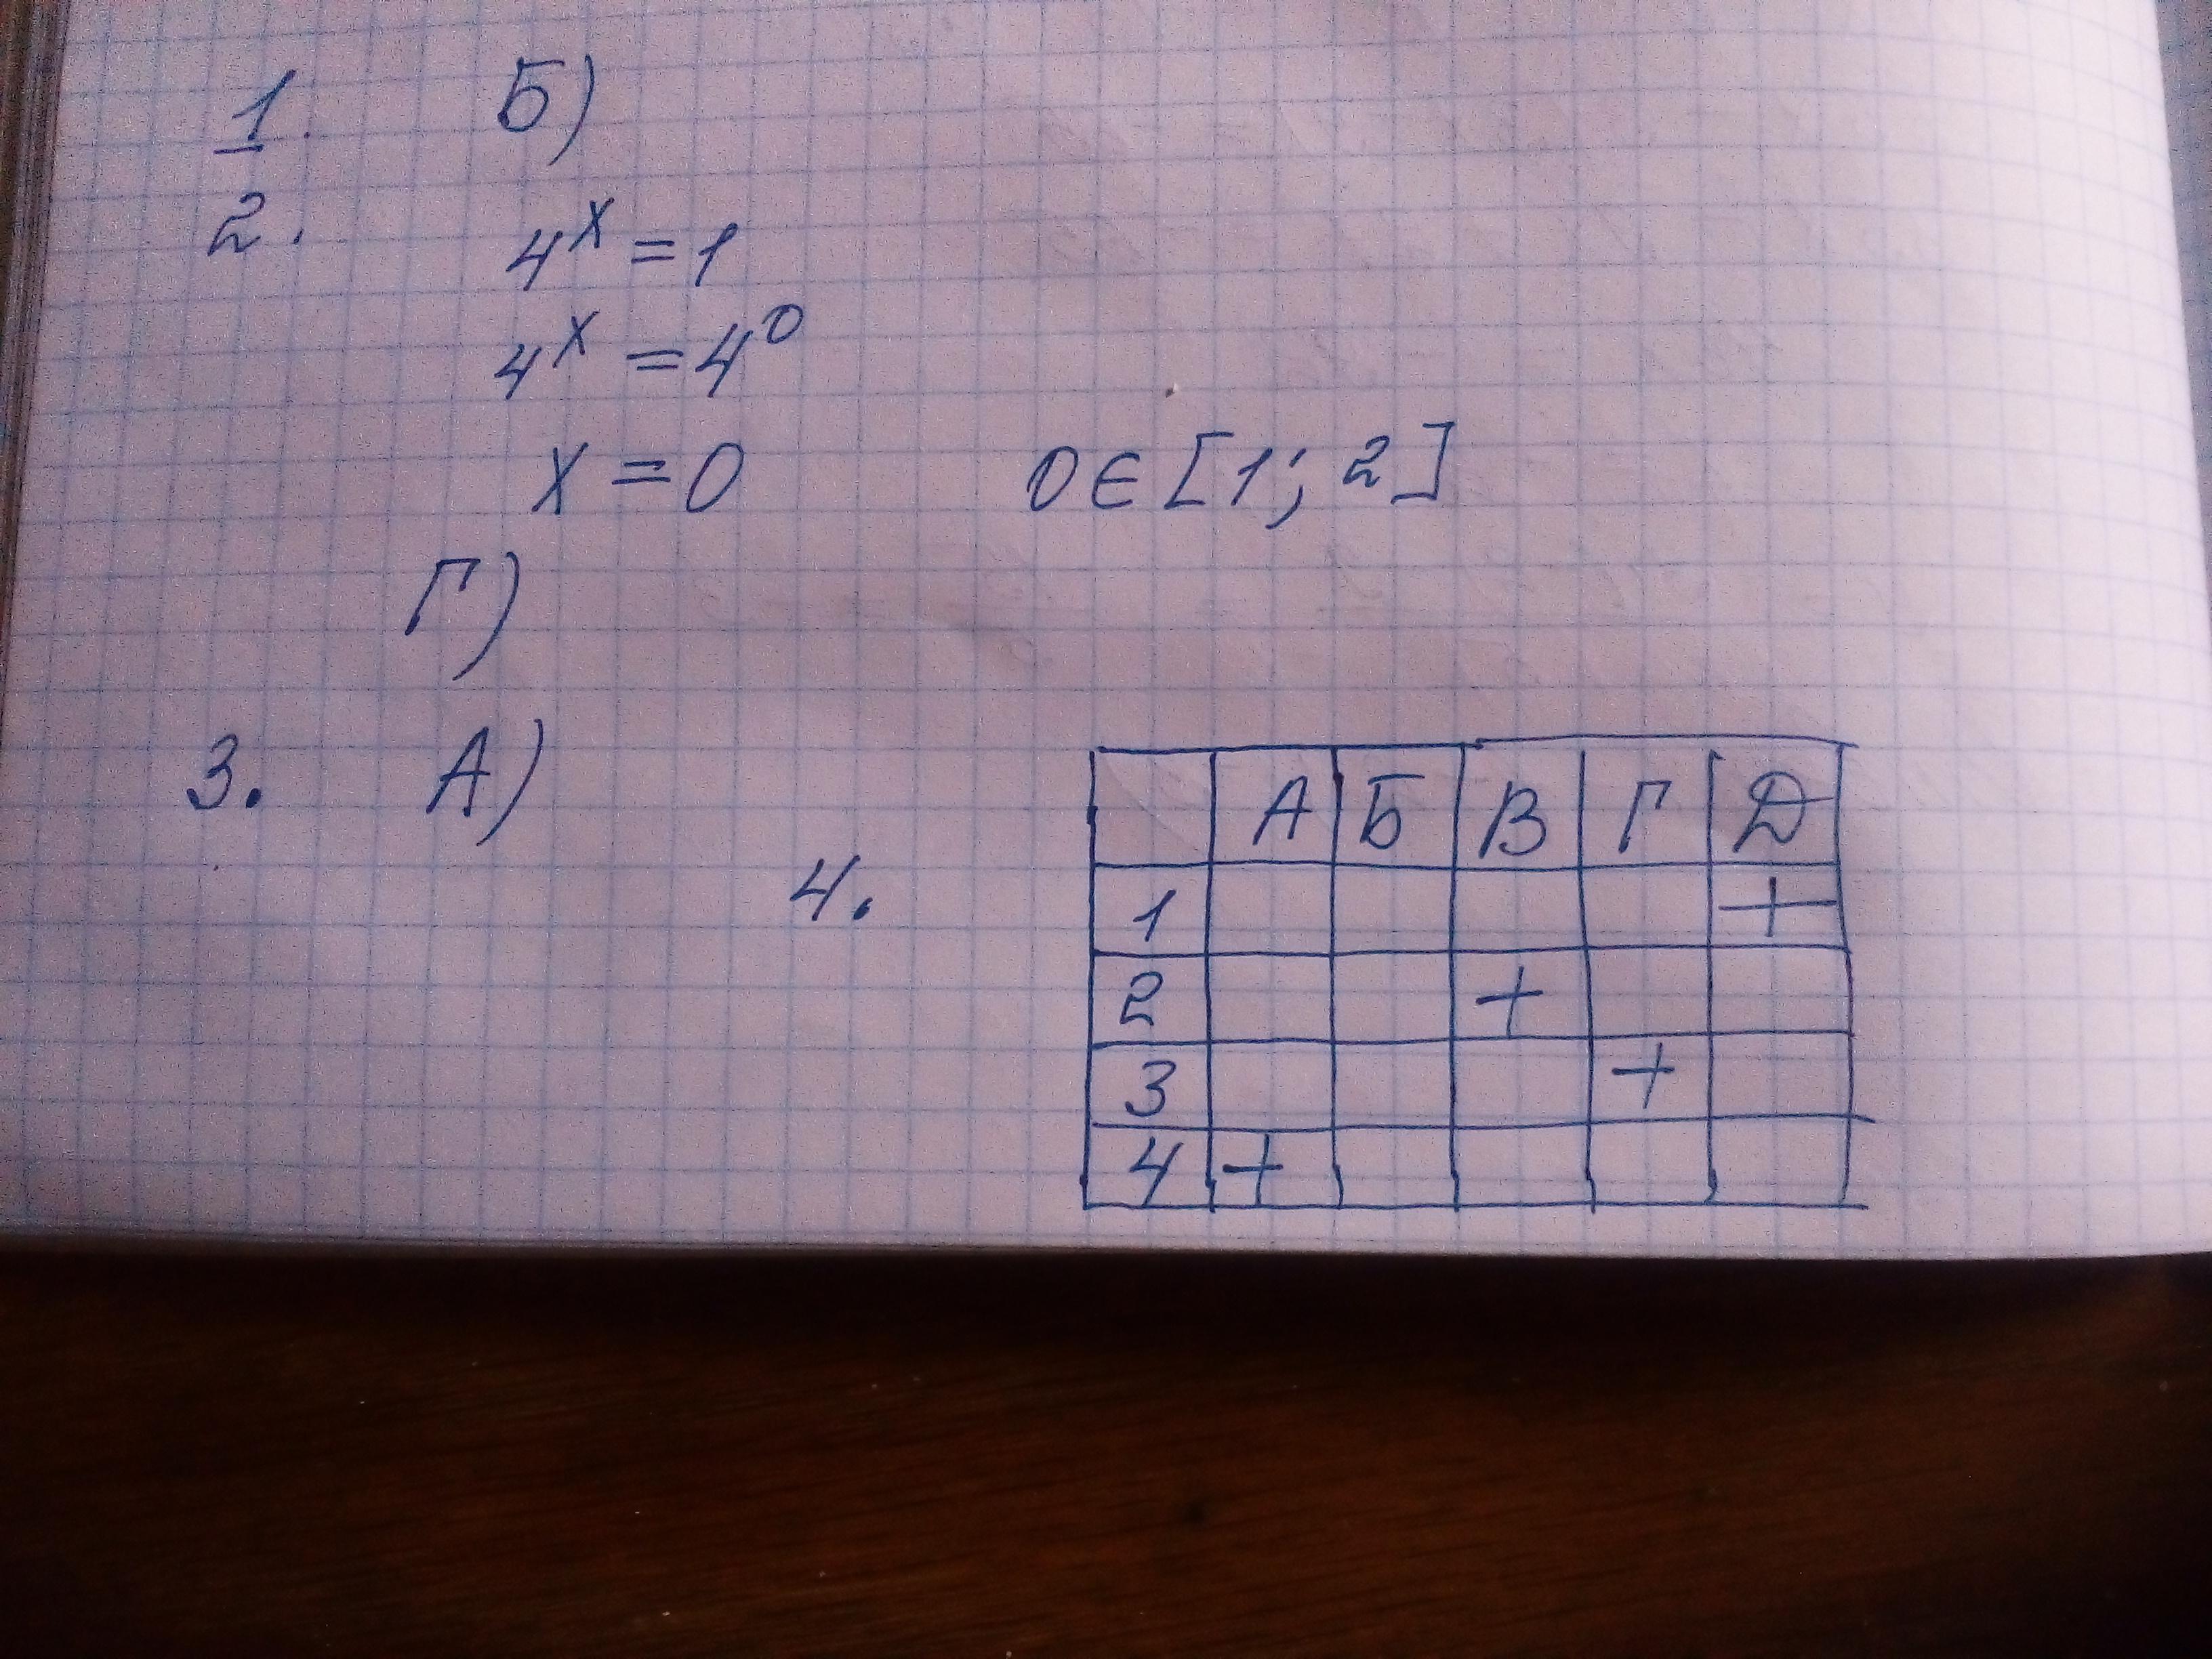 1. Б)
2. 4ˣ = 1
4ˣ = 4⁰
x = 0 0 ∈ [1; 2]
Г)
3. А)
4.
А Б В Г Д
1 +
2 +
3 +
4 +